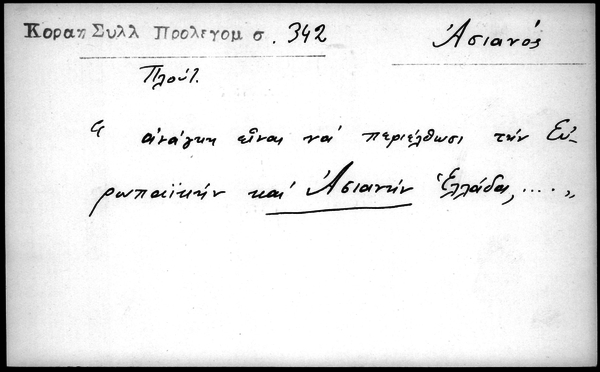 Κοραη Συλλ Προλεγομ σ. 342
Ἀσιανός
Πλούτ.
"ἀνάγκη εἶναι νά περιέλθωσι τήν Εὐ-
ρωπαϊκήν καί Ἀσιανήν Ἑλλάδα, ...."